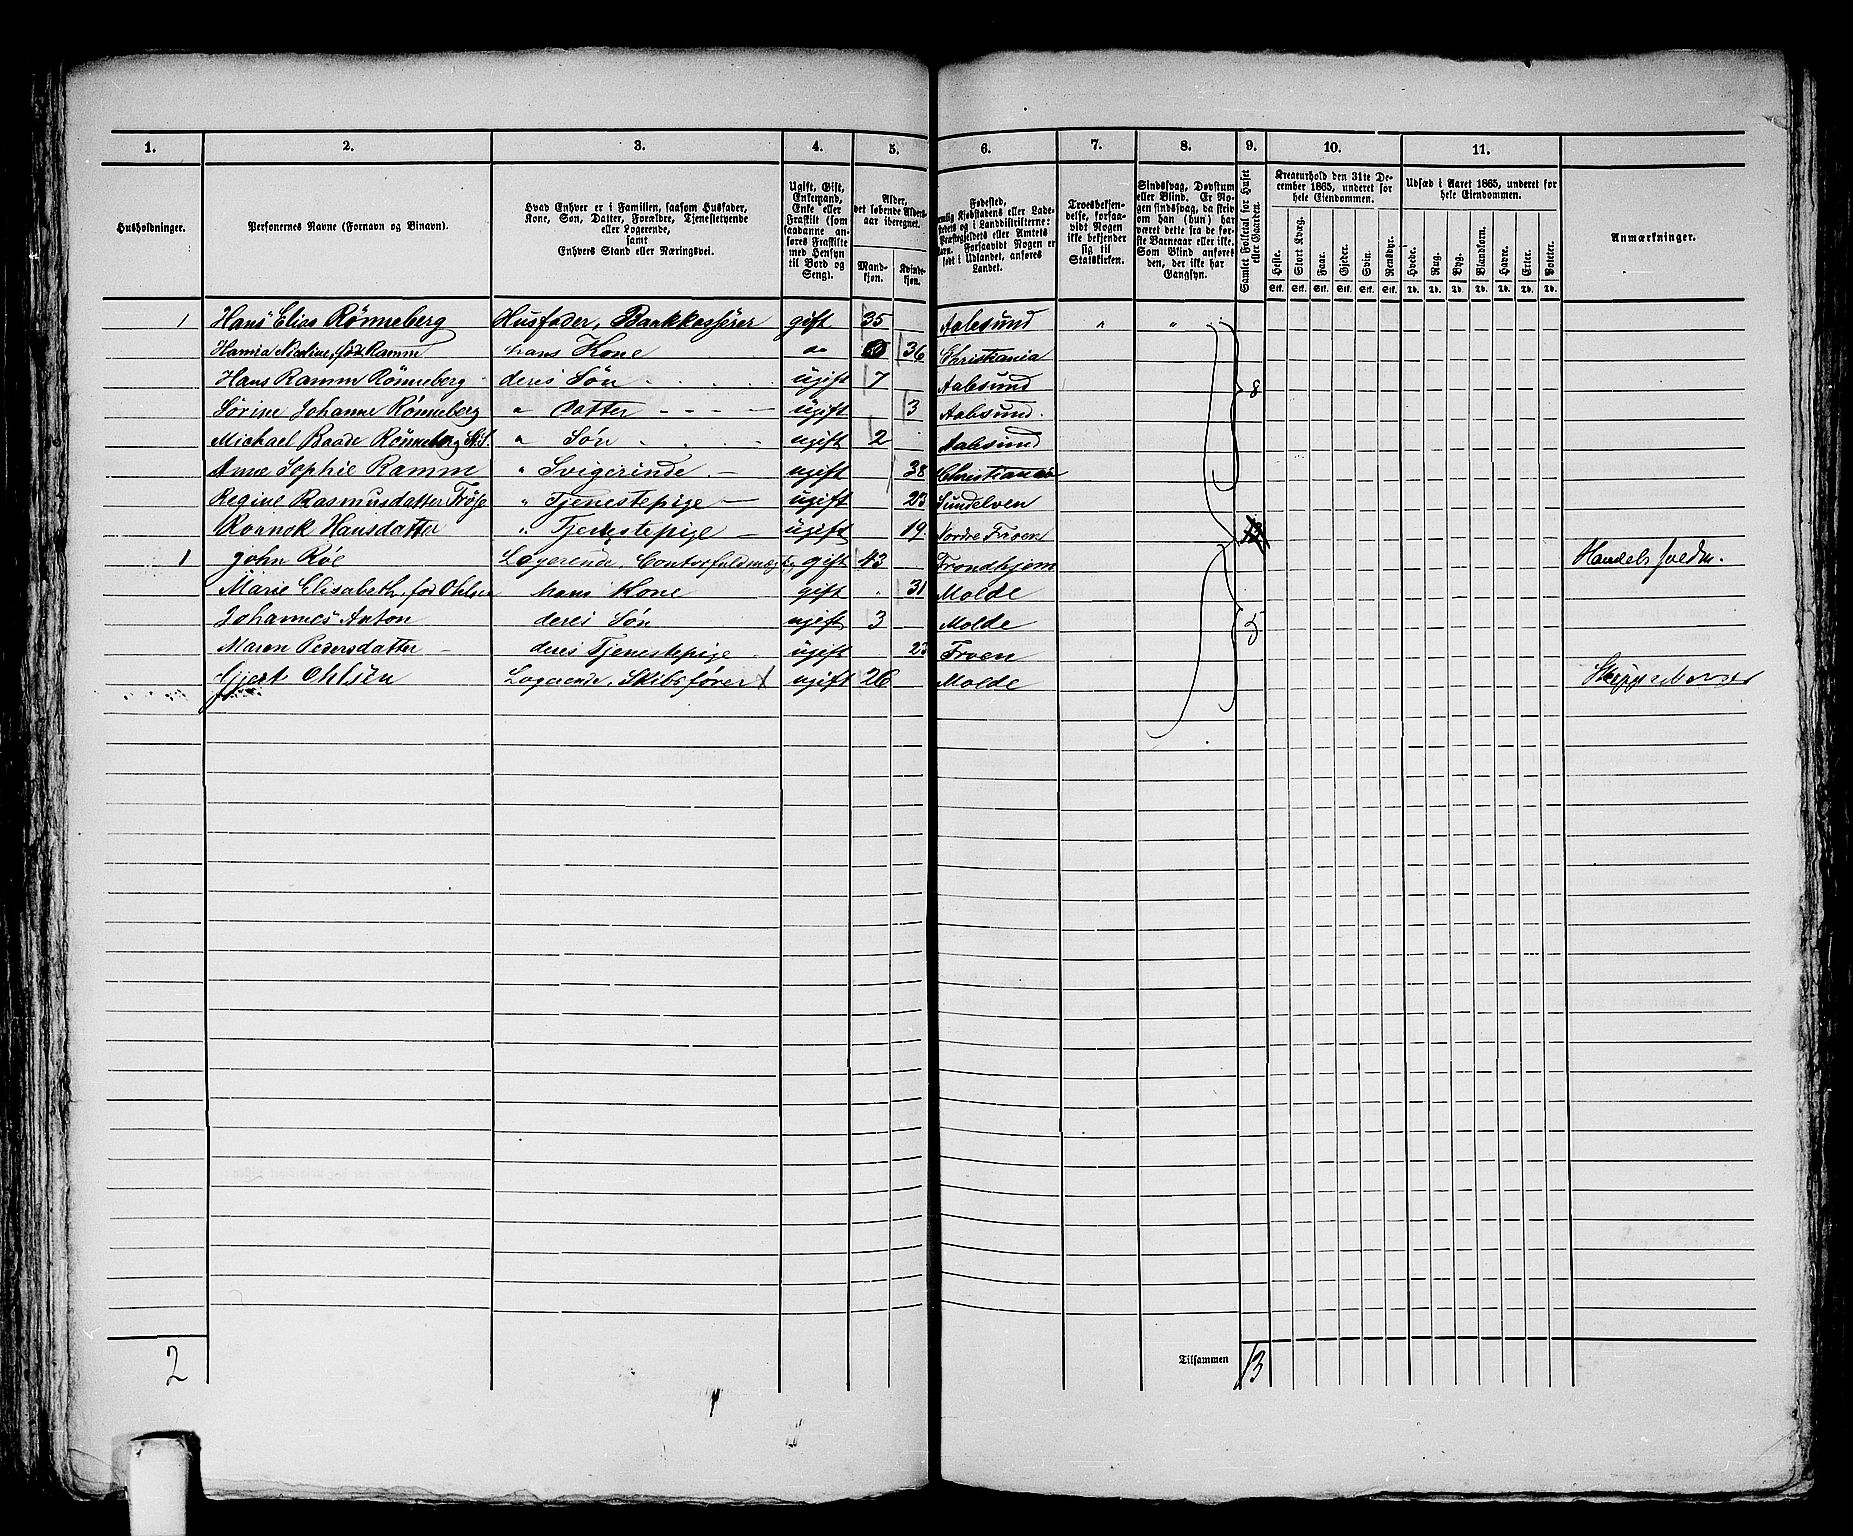 1. 2. 3. 4. 5. 6. 7. 8. 9. 10. 11.
Husholdninger.
Personernes Navne (Fornavn og Binavn).
Hvad Enhver er i Familien, saasom Husfader,
Kone, Søn, Datter, Forældre, Tjenestetyende
eller Logerende,
samt
Enhvers Stand eller Næringsvei.
Ugift, Gift,
Enkemand,
Enke eller
Fraskilt (som
saadanne an-
føres Fraskilte
med Hensyn
til Bord og
Seng).
Alder,
det løbende Alders-
aar iberegnet.
Mand-
kjøn.
Kvinde-
kjøn.
Fødested,
nemlig Kjøbstadens eller Lade-
stedets og i Landdistrikterne:
Præstegjeldets eller Amtets
Navn. Forsaavidt Nogen er
født i Udlandet, anføres
Landet.
Troesbekjen-
delse, forsaa-
vidt Nogen
ikke bekjender
sig til
Statskirken.
Sindssvag, Døvstum
eller Blind. Er No-
gen sindssvag, da skriv
om han (hun) har
været dette fra de før-
ste Barneaar eller ikke.
Som Blind anføres
den, der ikke har
Gangsyn.
Samlet Folketal for Huset
eller Gaarden.
Kreaturhold den 31te De-
cember 1865, underet for
hele Eiendommen.
Heste. Stort Kvæg. Faar. Gjeder. Svin. Rensdyr.
Stk. Stk. Stk. Stk. Stk. Stk.
Udsæd i Aaret 1865, underet for
hele Eiendommen.
Hvede. Rug. Byg. Blandkorn. Havre. Erter. Poteter.
Td. Td. Td. Td. Td. Td. Td.
Anmærkninger.
1 Hans Elias Rønneberg Husfader, Bankkasserer gift 35 Aalesund " "
Nicoline, fød Ramm hans Kone " 36 Christiania
Hans Ramm Rønneberg deres Søn ugift 7 Aalesund 8
Sørine Johanne Rønneberg " Datter ugift 3 Aalesund.
Michael Baade Rønneberg " Søn ugift 2 Aalesund
Anne Sophie Ramm " Svigerinde ugift 38 Christiania
Regine Rasmusdatter " Tjenestepige ugift 23 Sundelven
Hansdatter " Tjenestepige ugift 19 Nordre Froen 13
1 John Røe Logerende, gift 43 Trondhjem
Marie Elisabeth, fød Ohlsen hans Kone gift 31 Molde
Johannes Anton deres Søn ugift 3 Molde 5
Maren Pedersdatter deres Tjenestepige ugift 23 Froen
Gjert Ohlsen Logerende, Skibsfører ugift 26 Molde
2 Tilsammen 13